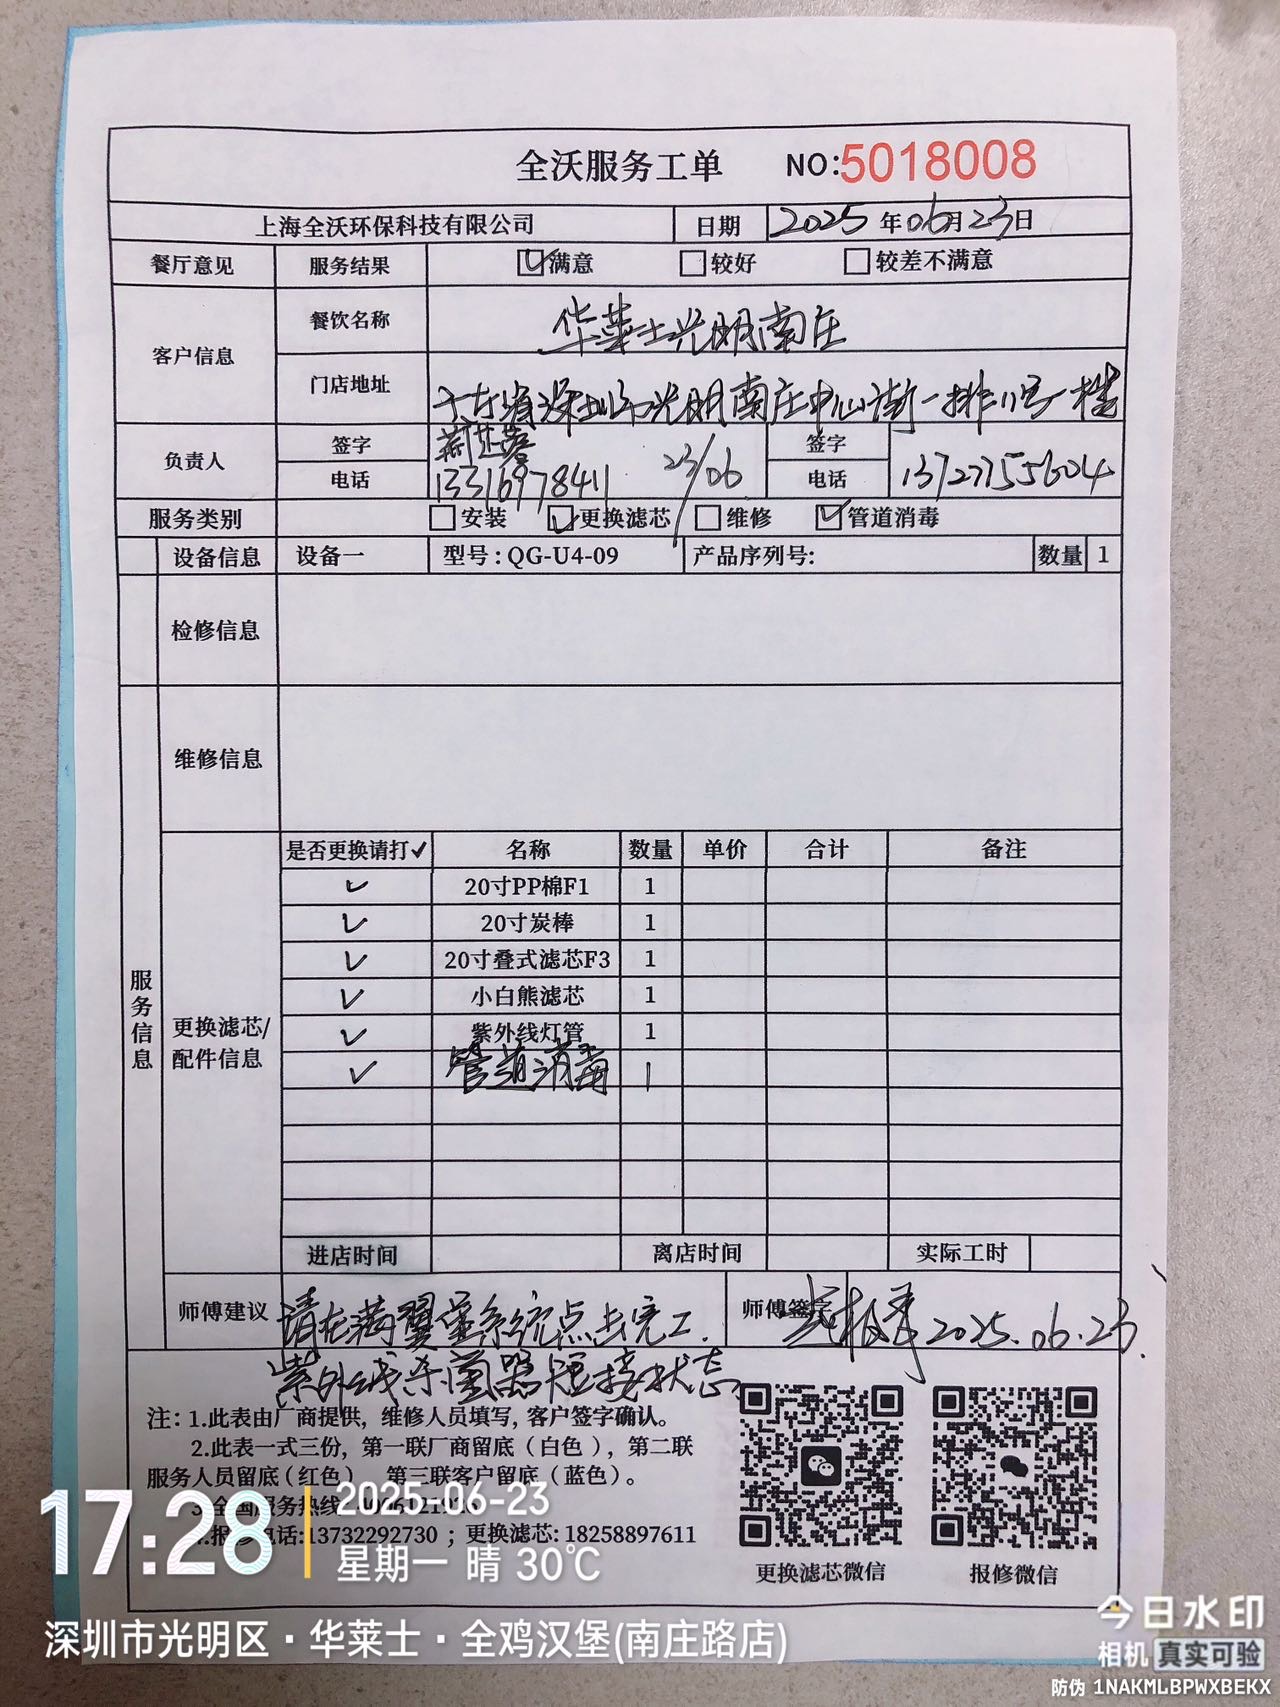 全沃服务工单 NO:5018008
上海全沃环保科技有限公司 日期 2025年06月23日
餐厅意见 服务结果 满意 较好 较差不满意
客户信息 餐饮名称 华莱士光明南庄
门店地址 广东省深圳市光明南庄中心街一排11号一楼
负责人 签字 签字
电话 13316978411 23/06 电话 13727155604
服务类别 安装 更换滤芯 维修 管道消毒
设备信息 设备一 型号:QG-U4-09 产品序列号: 数量 1
检修信息
维修信息
服务信息
更换滤芯/
配件信息
是否更换请打✓ 名称 数量 单价 合计 备注
✓ 20寸PP棉F1 1
✓ 20寸炭棒 1
✓ 20寸叠式滤芯F3 1
✓ 小白熊滤芯 1
✓ 紫外线灯管 1
✓ 管道消毒 1
进店时间 离店时间 实际工时
师傅建议 请在满翼堂系统点击完工. 师傅签字 2025.06.23.
紫外线杀菌器短接状态
注:1.此表由厂商提供,维修人员填写,客户签字确认。
2.此表一式三份,第一联厂商留底(白色),第二联
服务人员留底(红色) 第三联客户留底(蓝色)。
全国服务热线
电话:13732292730 ; 更换滤芯: 18258897611
更换滤芯微信 报修微信
17:28 2025-06-23
星期一 晴 30℃
深圳市光明区·华莱士·全鸡汉堡(南庄路店)
今日水印
相机 真实可验
防伪 1NAKMLBPWXBEKX